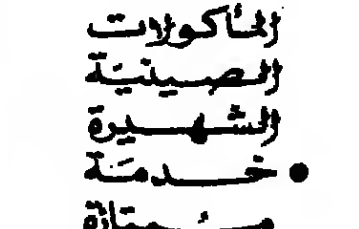 المأكولات
الصينية
الشهيرة
• خدمة
ممتازة